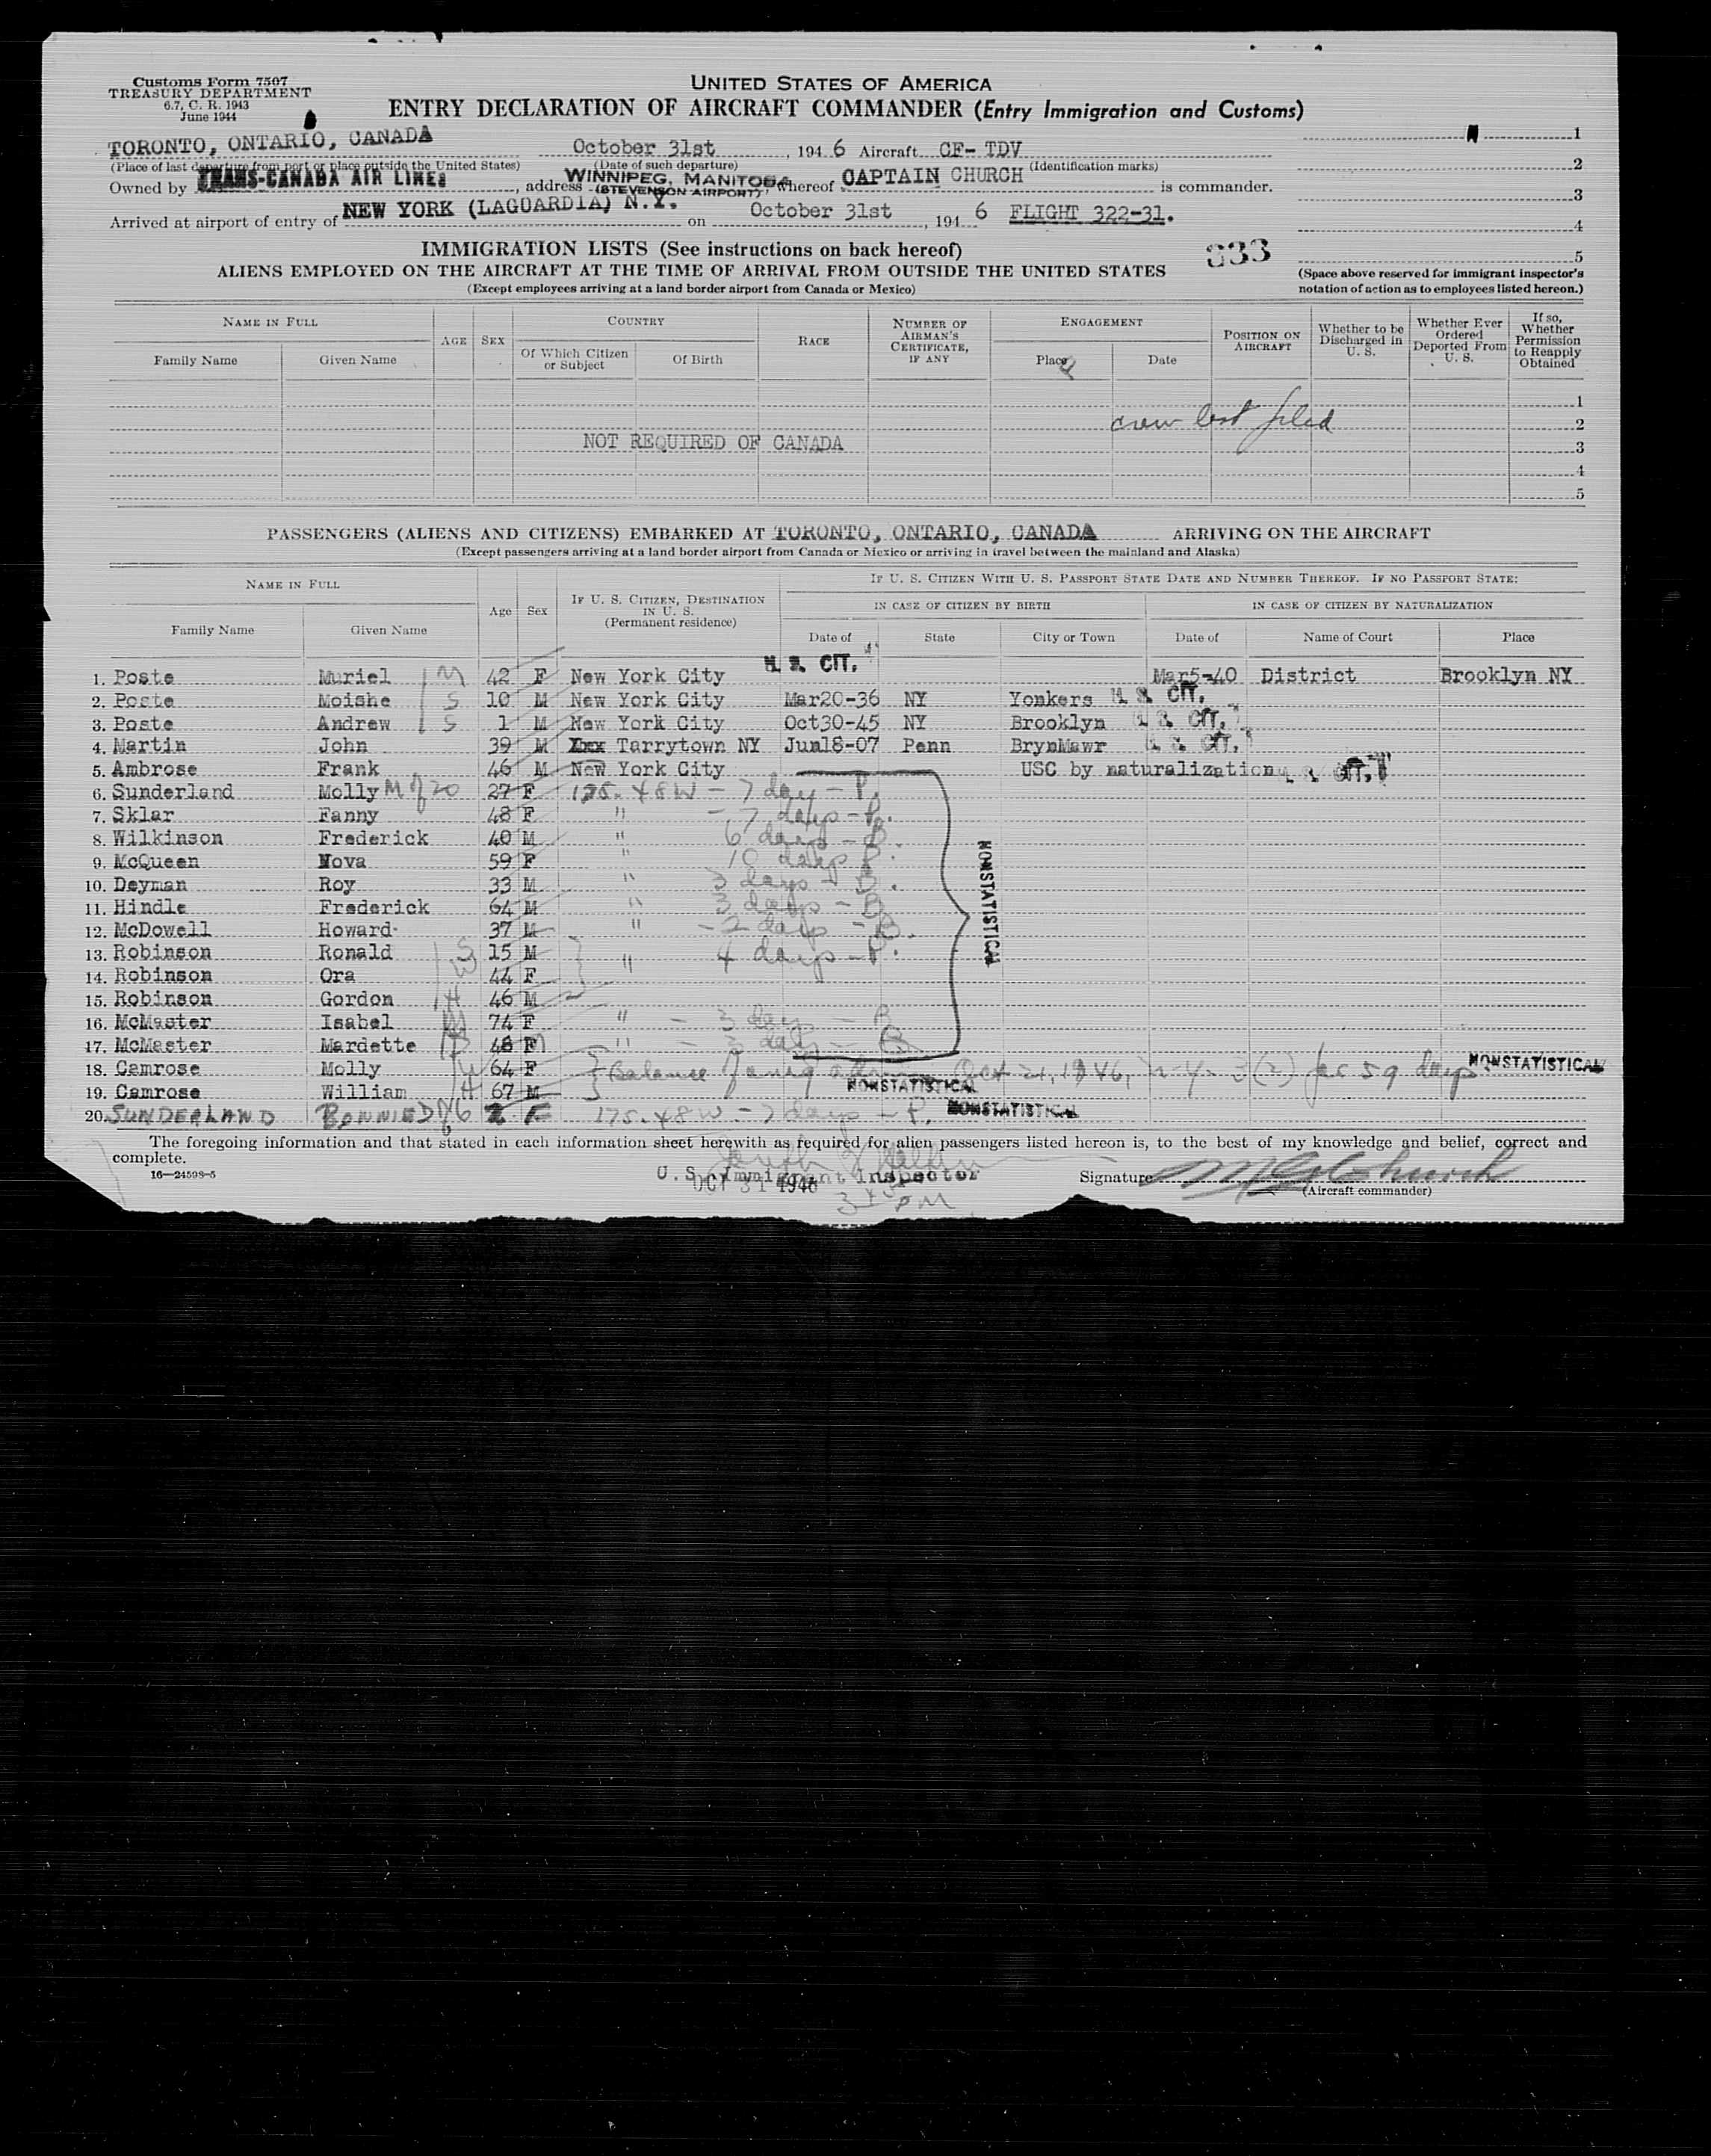 Customs Form 7507
TREASURY DEPARTMENT
6.7, C. R. 1943
June 1944
UNITED STATES OF AMERICA
ENTRY DECLARATION OF AIRCRAFT COMMANDER (Entry Immigration and Customs)
TORONTO, ONTARIO, CANADA October 31st, 1946 Aircraft CF- TDV
(Place of last departure from port or place outside the United States) (Date of such departure) (Identification marks)
Owned by TRANS-CANADA AIR LINES, address WINNIPEG, MANITOBA (STEVENSON AIRPORT), whereof CAPTAIN CHURCH is commander.
Arrived at airport of entry of NEW YORK (LAGUARDIA) N.Y. on October 31st, 1946 FLIGHT 322-31.
1
2
3
4
5
(Space above reserved for immigrant inspector's notation of action as to employees listed hereon.)
333
IMMIGRATION LISTS (See instructions on back hereof)
ALIENS EMPLOYED ON THE AIRCRAFT AT THE TIME OF ARRIVAL FROM OUTSIDE THE UNITED STATES
(Except employees arriving at a land border airport from Canada or Mexico)
NAME IN FULL
Family Name Given Name
AGE SEX
COUNTRY
Of Which Citizen or Subject Of Birth
RACE
NUMBER OF AIRMAN'S CERTIFICATE, IF ANY
ENGAGEMENT
Place Date
POSITION ON AIRCRAFT
Whether to be Discharged in U. S.
Whether Ever Ordered Deported From U. S.
If so, Whether Permission to Reapply Obtained
1
crew list filed 2
NOT REQUIRED OF CANADA 3
4
5
PASSENGERS (ALIENS AND CITIZENS) EMBARKED AT TORONTO, ONTARIO, CANADA ARRIVING ON THE AIRCRAFT
(Except passengers arriving at a land border airport from Canada or Mexico or arriving in travel between the mainland and Alaska)
NAME IN FULL
Family Name Given Name
Age Sex
IF U. S. CITIZEN, DESTINATION IN U. S. (Permanent residence)
IF U. S. CITIZEN WITH U. S. PASSPORT STATE DATE AND NUMBER THEREOF. IF NO PASSPORT STATE:
IN CASE OF CITIZEN BY BIRTH IN CASE OF CITIZEN BY NATURALIZATION
Date of State City or Town Date of Name of Court Place
1. Poste Muriel M 42 F New York City U. S. CIT. Mar5-40 District Brooklyn NY
2. Poste Moishe S 10 M New York City Mar20-36 NY Yonkers U. S. CIT.
3. Poste Andrew S 1 M New York City Oct30-45 NY Brooklyn U. S. CIT.
4. Martin John 39 M Xxx Tarrytown NY Jun18-07 Penn BrynMawr U. S. CIT.
5. Ambrose Frank 46 M New York City USC by naturalization U. S. CIT.
6. Sunderland Molly M of 20 27 F 175.48W - 7 day - P.
7. Sklar Fanny 48 F " - 7 days - P.
8. Wilkinson Frederick 40 M " 6 days - B.
9. McQueen Nova 59 F " 10 days P.
10. Deyman Roy 33 M " 3 days - B.
11. Hindle Frederick 64 M " 3 days - B
12. McDowell Howard 37 M " - 2 days - B.
13. Robinson Ronald S 15 M " 4 days - P.
14. Robinson Ora W 44 F
15. Robinson Gordon H 46 M
16. McMaster Isabel M 74 F " - 3 days - B
17. McMaster Mardette 48 F " - 3 days - B
NONSTATISTICAL
18. Camrose Molly W 64 F Balance Oct 21, 1946, 3(2) for 59 days NONSTATISTICAL
19. Camrose William H 67 M NONSTATISTICAL
20. SUNDERLAND BONNIE D of 6 2 F 175.48W - 7 days - P. NONSTATISTICAL
The foregoing information and that stated in each information sheet herewith as required for alien passengers listed hereon is, to the best of my knowledge and belief, correct and
complete.
16—24598-5
U. S. Immigrant Inspector
OCT 31 1946
3 45 PM
Signature
(Aircraft commander)